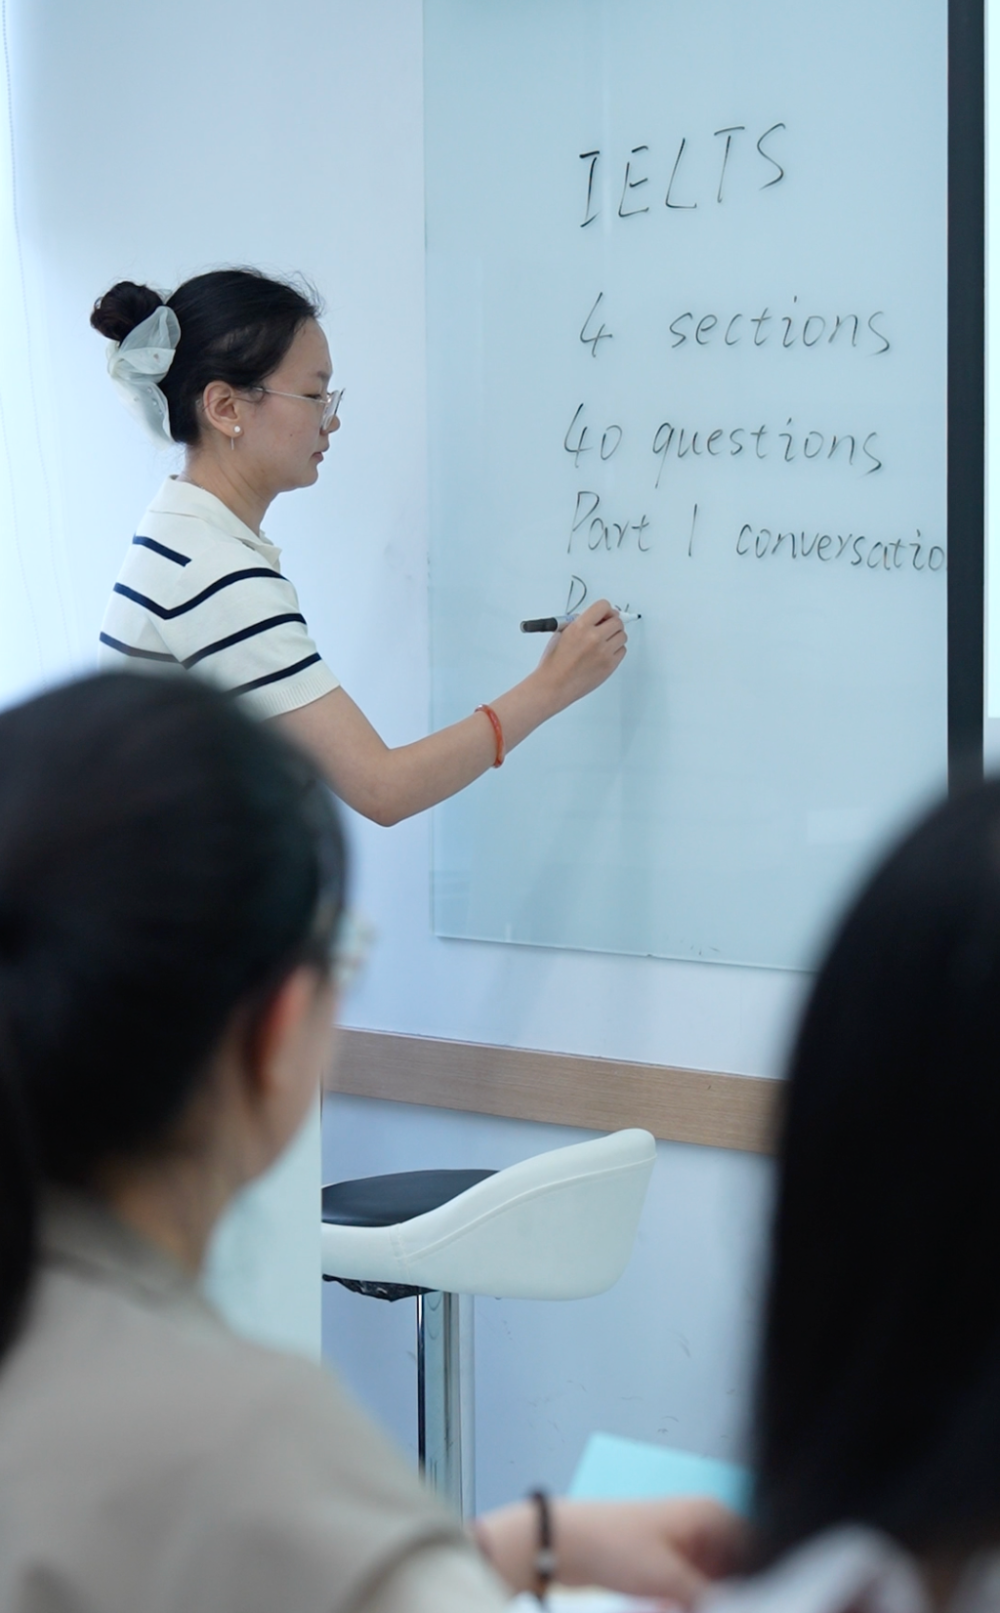 IELTS
4 sections
40 questions
Part 1 conversatio